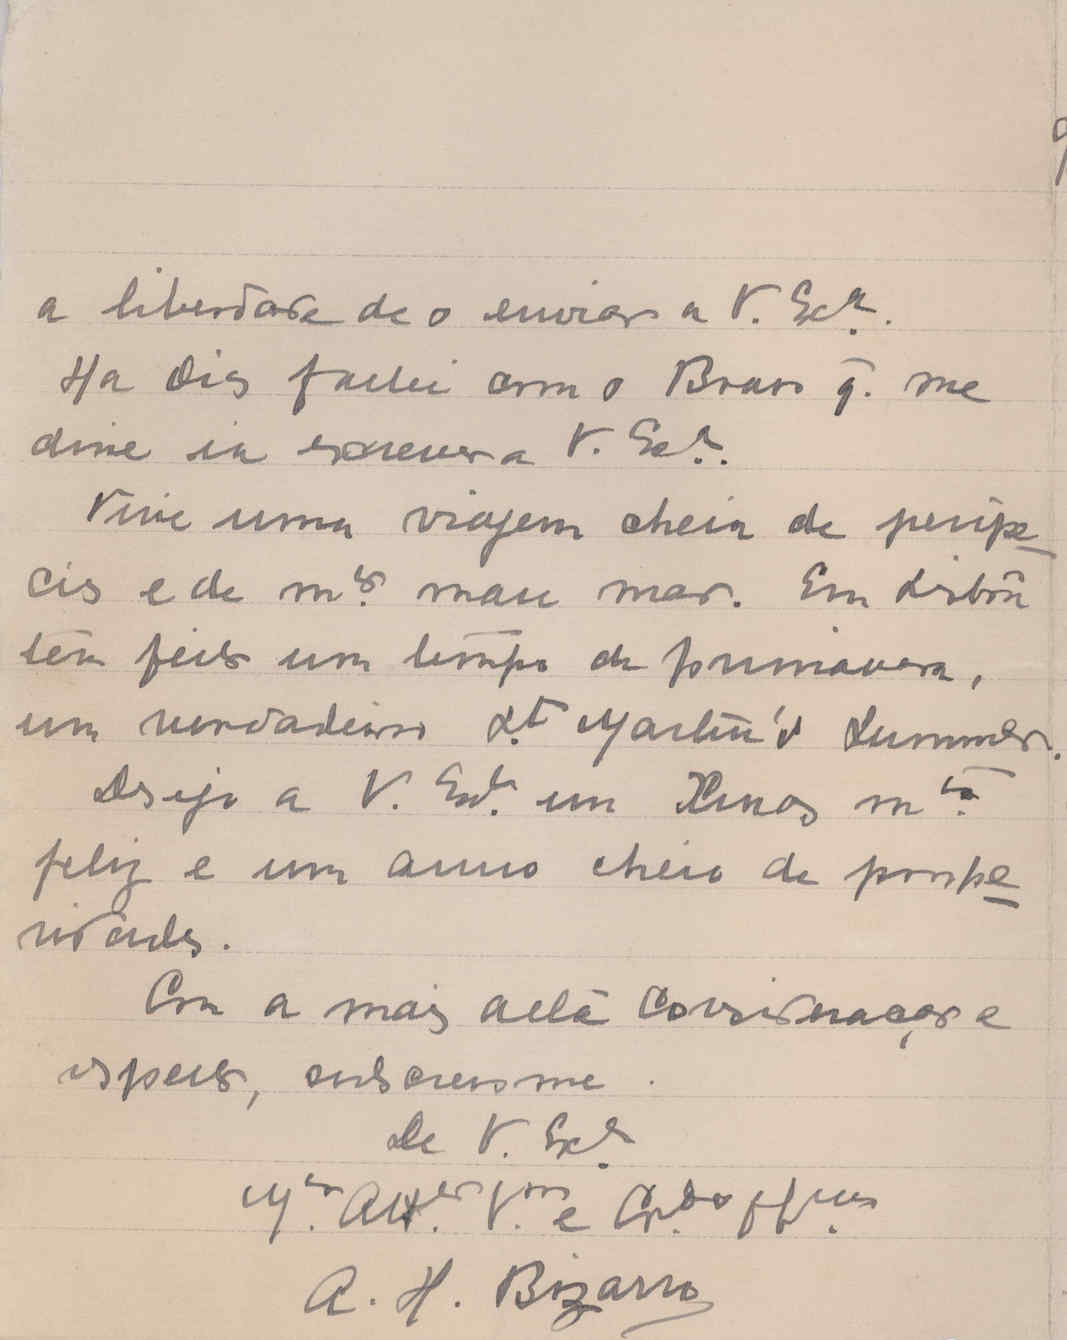 a liberdade de o enviar a V. Exª.
Ha dias fallei com o Bravo q. me
disse ia escrever a V. Exª.
Tive uma viagem cheia de peripe-
cias e de mto. mau mar. Em Lisboa
tem feito um tempo de primavera,
um verdadeiro St. Martin's Summer.
Desejo a V. Exª. um Xmas mto.
feliz e um anno cheio de prospe-
ridades.
Com a mais alta consideração e
respeito, subscrevo-me.
De V. Exª.
Mto. Atto. V.or e
A. H. Bizarro